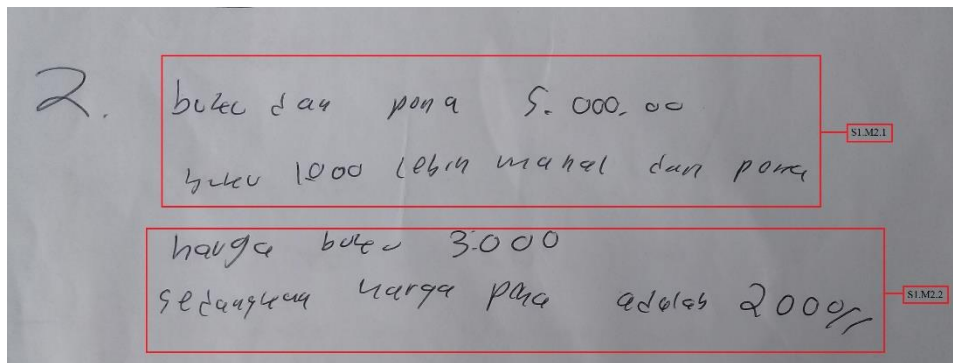 2.
buku dan pena 5.000,00
buku 1000 lebih mahal dari pena
S1.M2.1
harga buku 3.000
sedangkan harga pena adalah 2000//
S1.M2.2